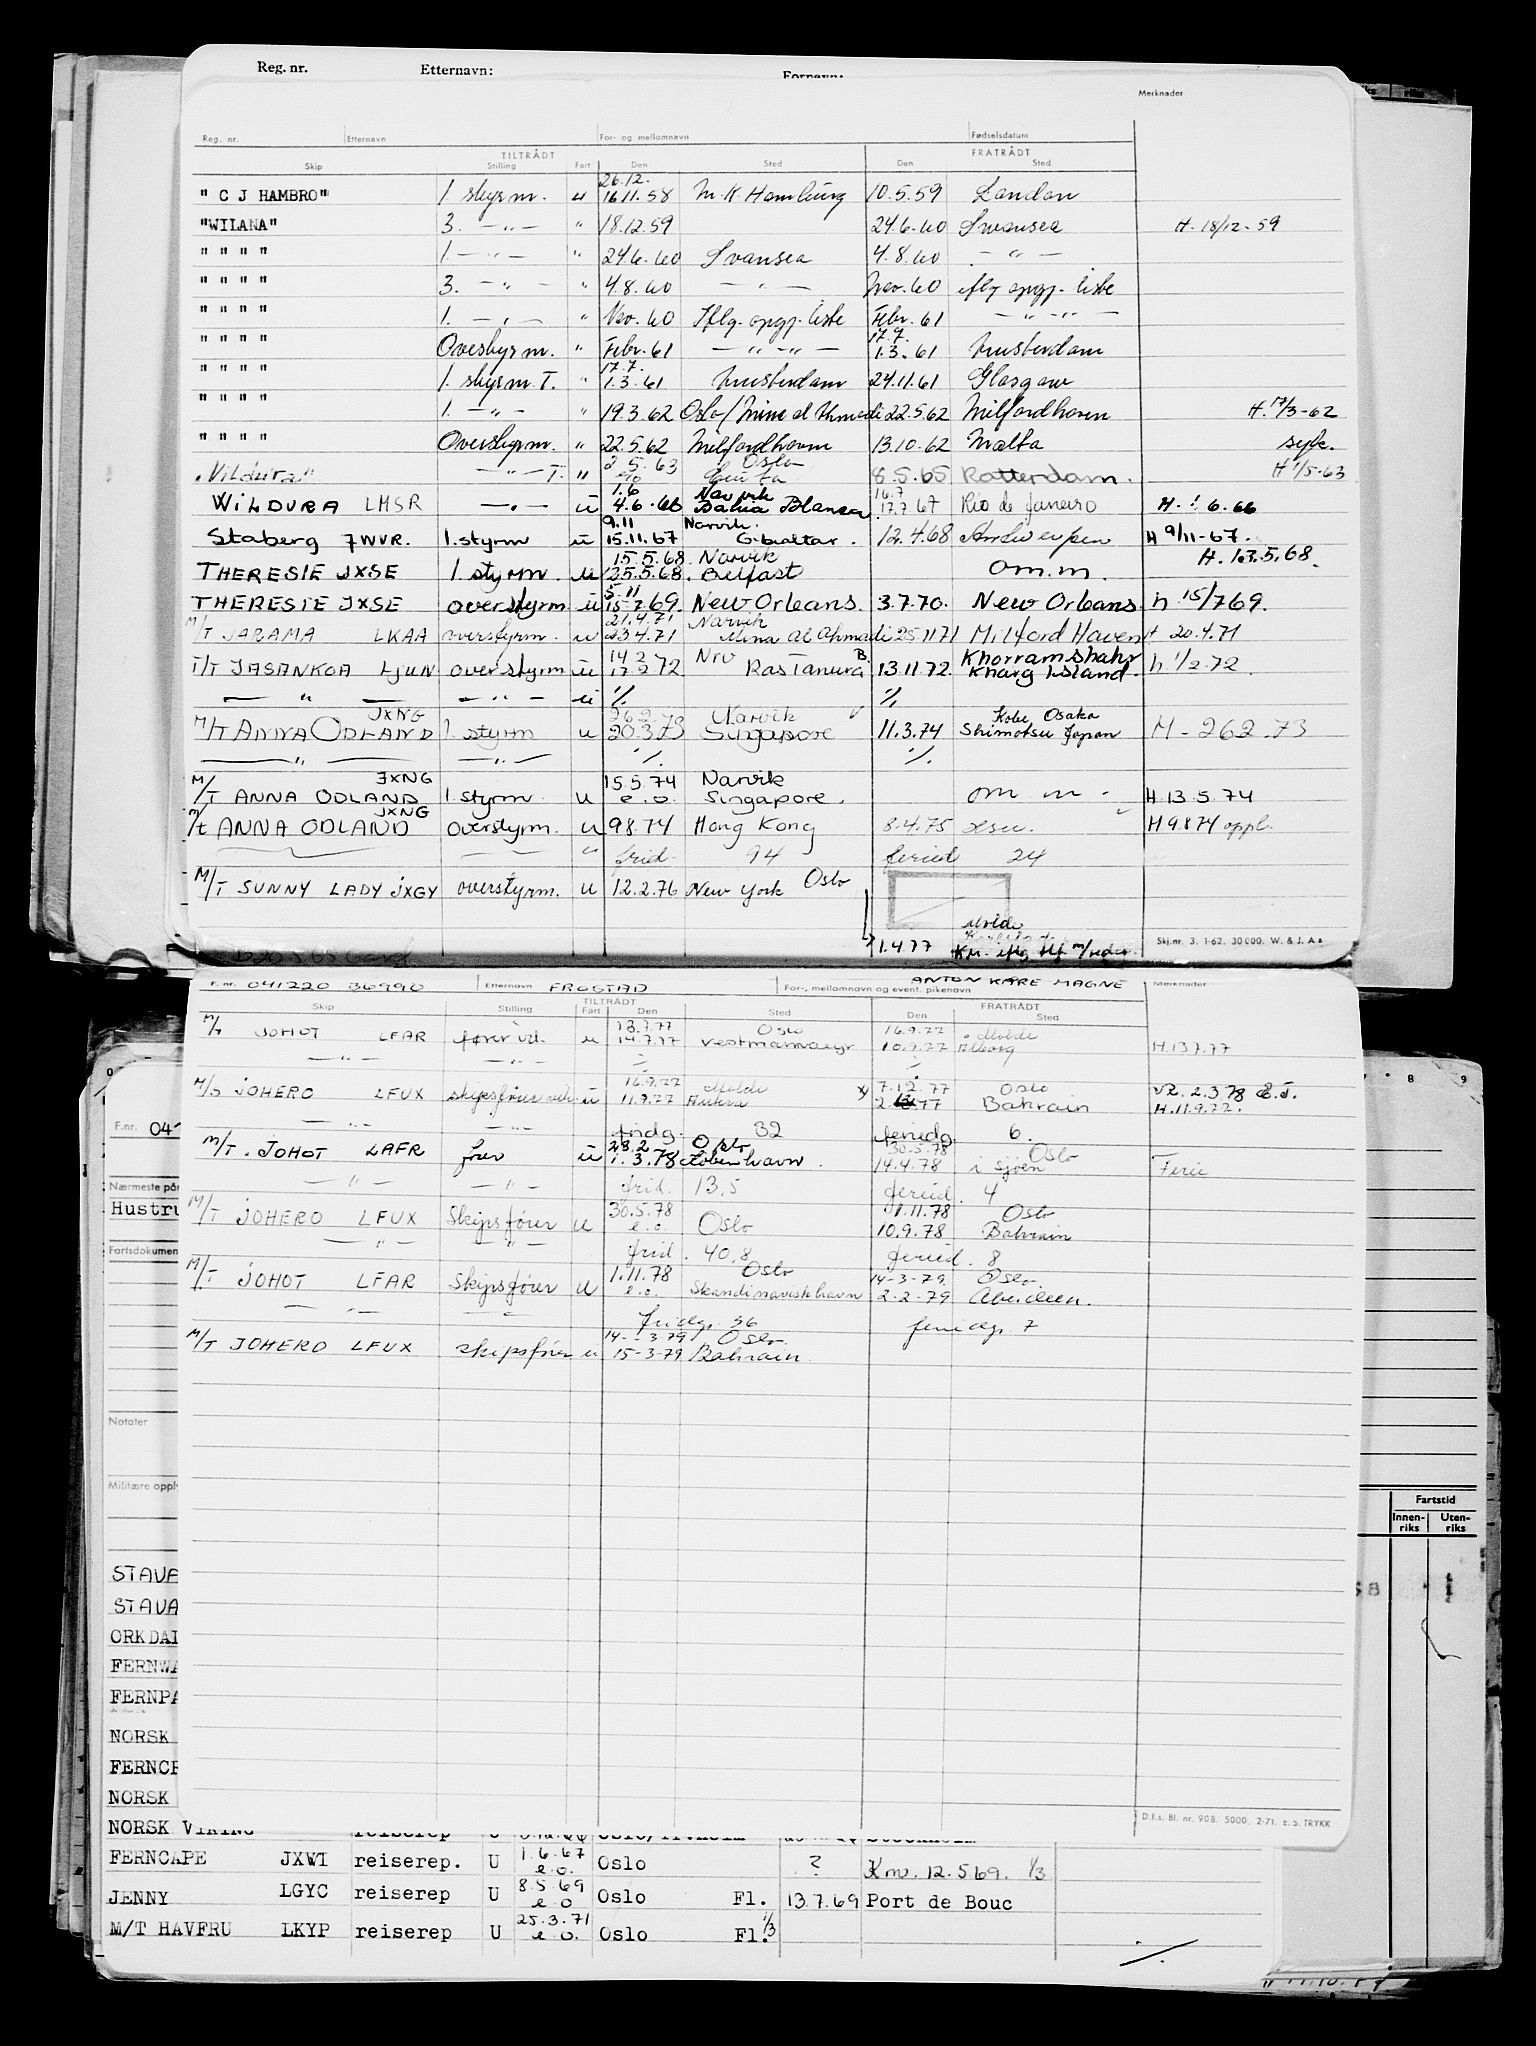 Reg. nr. Etternavn: Fornavn:
Merknader
Reg. nr. Etternavn For- og mellomnavn Fødselsdatum
TILTRÅDT FRATRÅDT
Skip Stilling Fart Den Sted Den Sted
26.12.
"C J HAMBRO" 1. styrm. u 16.11.58 M.K Hamburg 10.5.59 London
"WILANA" 3. —"— " 18.12.59 24.6.60 Swansea H. 18/12-59
" " " " 1. —"— " 24.6.60 Svansea 4.8.60 —"—
" " " " 3. —"— " 4.8.60 —"— Nov.60 iflg oppg. liste
" " " " 1. —"— " Nov.60 Iflg. oppg. liste Febr.61 —"—"—
17.7.
" " " " Overstyrm. " Febr.61 —"—"— 1.3.61 Amsterdam
17.7.
" " " " 1. styrm. T. " 1.3.61 Amsterdam 24.11.61 Glasgow
" " " " 1. —"— " 19.3.62 Oslo/Mina al Ahmadi 22.5.62 Milfordhaven H. 17/3-62
" " " " Overstyrm. " 22.5.62 Milfordhavn 13.10.62 Malta syk.
2.5.63 Oslo
"Vildura" —"— T. " Ceuta 8.5.65 Rotterdam. H 1/5-63
1.6 Narvik 16.7
WILDURA LMSR —"— u 4.6.66 Bahia Blanca 17.7 67 Rio de Janeiro H. 1 6.66
9.11 Narvik.
Staberg JWVR. 1.styrm u 15.11.67 Gibraltar. 12.4.68 Antwerpen H 9/11-67.
15.5.68. Narvik H. 13.5.68.
THERESIE JXSE 1.styrm u 25.5.68. Belfast om.m.
5-11
THERESIE JXSE overstyrm. u 15-7.69. New Orleans. 3.7.70. New Orleans. h. 15/769.
21.4.71 Narvik
M/T JARAMA LKAA overstyrm. u 23.4.71 Mina al Ahmadi 25 11 71 Milford Haven H 20.4.71
14 2 Nrv B. Khorramshahr
T/T JASANKOA LJUN overstyrm u 17.2 72 Ras Tanura 13.11 72. Kharg Island. h. 1/2.72.
— " — —"— u % %
JXNG 26.2.73 Narvik Kobe Osaka
M/T ANNA ODLAND 1 styrm u 20.3.73 Singapore 11.3.74 Shimotsu Japan H - 262.73
— " — —"— % %
JXNG 15.5.74 Narvik
M/T ANNA ODLAND 1.styrm. u e.o. Singapore. om m. H 13.5.74
JXNG
M/t ANNA ODLAND overstyrm. u 9 8.74 Hong Kong 8.4.75 H 9.8 74 oppl.
— — " frid. 94 feried 24
M/T SUNNY LADY JXGY overstyrm. u 12.2.76 New York Oslo
Molde
1.4.77 Kn. iflg tlf m/reder.
Skj.nr. 3. 1-62. 30000. W. & J. A.s
F.nr. 041220 36990 Etternavn FROSTAD For-, mellomnavn og event. pikenavn ANTON KÅRE MAGNE Merknader
TILTRÅDT FRATRÅDT
Skip Stilling Fart Den Sted Den Sted
13.7.77 Oslo 16.9.77 Molde
M/T JOHOT LFAR fører vik. u 14.7.77 Vestmannaeyr 10.9.77 Ålborg H.13 7.77
—"— —"— % %
16.9.77 Molde 7.12.77 Oslo
M/S JOHERO LFUX skipsfører vik u 11.9.77 x 2.12.77 Bahrain H.11.9.77.
—"— —"— fridg. 32 feriedg. 6.
28.2 Oslo 30.5.78 Oslo
M/T. JOHOT LAFR fører u 1.3.78 København. 14.4.78 i sjøen Ferie
—"— —"— frid. 13,5 feried. 4
30.5.78 1.11.78 Oslo
M/T JOHERO LFUX Skipsfører u e.o. Oslo 10.9.78 Bahrain
—"— —"— frid. 40,8 feried. 8
1.11.78 Oslo 14-3-79. Oslo.
M/T JOHOT LFAR Skipsfører u e.o. Skandinavisk havn 2-2-79 Aberdeen.
—"— —"— fridgr. 36 feriedgr. 7
14-3-79 Oslo.
M/T JOHERO LFUX skipsfører u 15-3-79 Bahrain.
D.f.s. Bl. nr. 908. 5000. 2-71. E.S. TRYKK
F.nr. 04
Nærmeste på
Hustru
Fartsdokumen
Notater
Militære oppl
8 9
Fartstid
Innen- Uten-
riks riks
STAVA
STAVA
ORKDAL
FERNWA
FERNPA
NORSK
FERNCR
NORSK
NORSK VIKING reiserep U
FERNCAPE JXWI reiserep. U 1.6.67 e.o. Oslo ? Knv. 12.5 69. 1/3
JENNY LGYC reiserep U 8.5.69 e.o Oslo Fl. 13.7.69 Port de Bouc
M/T HAVFRU LKYP reiserep U 25.3.71 e.o. Oslo Fl. 1/3